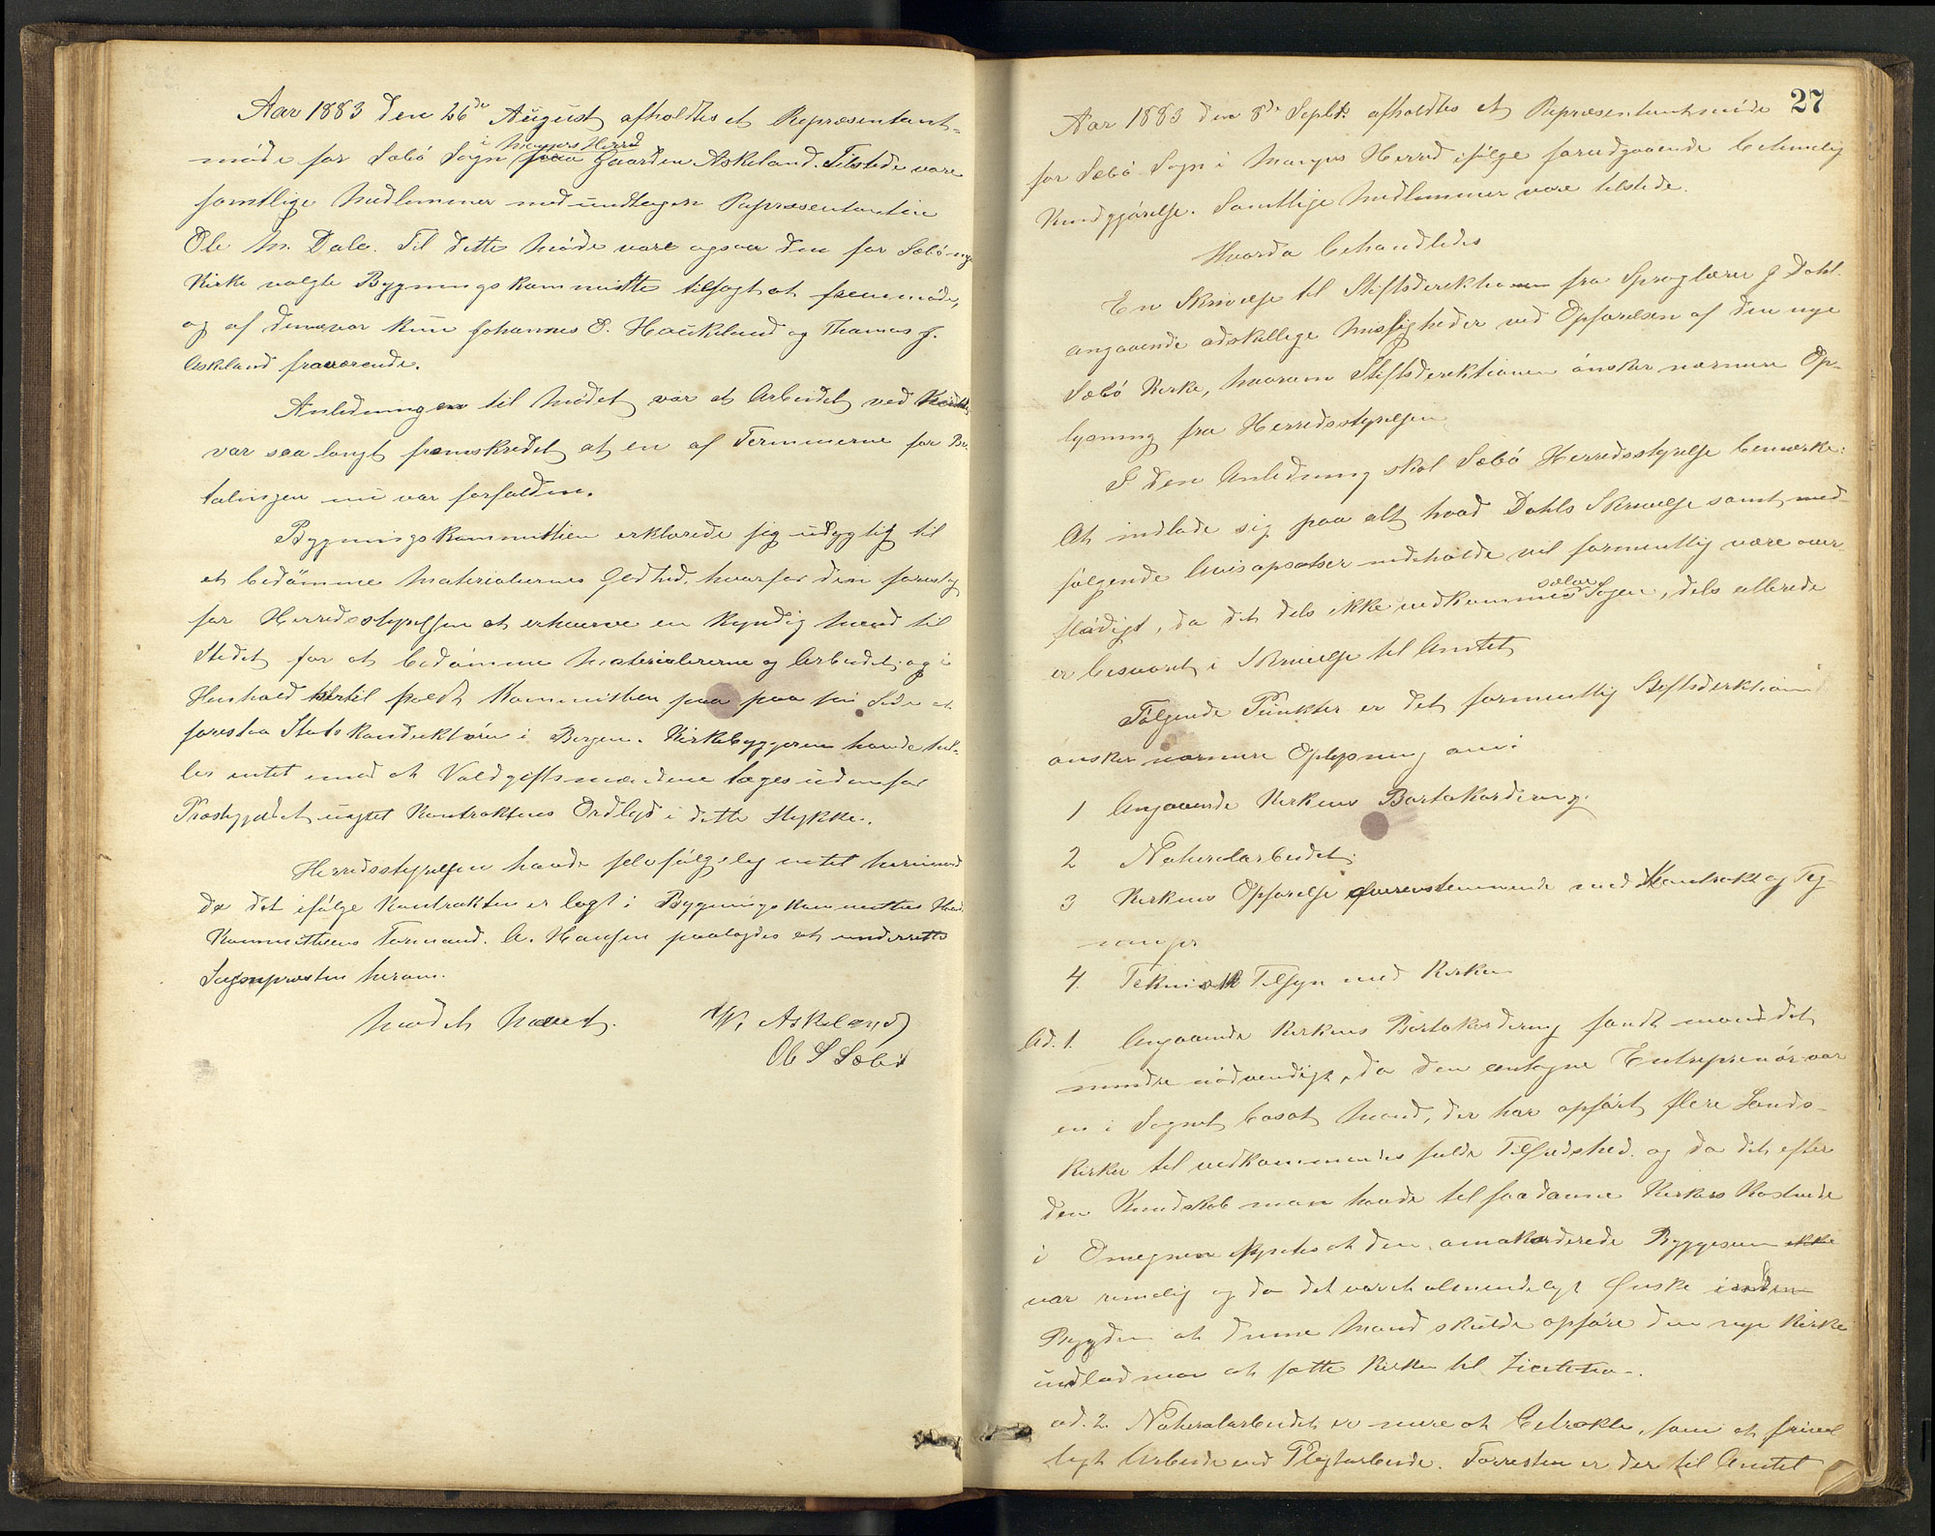 Aar 1883 den 26de August afholdtes et Repræsentant-
i Mangers Herred
møde for Sæbø Sogn paa Gaarden Askeland. Tilstede vare
samtlige Medlemmer med undtagen Repræsentanten
Ole M. Dale. Til dette Møde vare ogsaa den for Sæbø nye
Kirke valgte Bygningskommitte tilsagt at fremmøde,
og af denne var kun Johannes O. Haukeland og Thomas J.
Askeland fraværende.
Anledningen til Mødet var at Arbeidet ved Kirken
var saa langt fremskredet at en af Terminerne for Be-
talingen nu var forfalden.
Bygningskommitteen erklærede sig udygtig til
at bedømme Materialernes Godhed, hvorfor den foreslog
for Herredsstyrelsen at erhverve en kyndig Mand til
Stedet for at bedømme Materialererne og Arbeidet, og i
Henhold hertil troede Kommitteen paa paa sin Side at
foreslaa Stadskonduktøren i Bergen. Kirkebyggeren havde hel-
ler intet imod at Voldgiftsmændene tages udenfor
Præstegjeldet uagtet Kontraktens Ordlyd i dette Stykke.
Herredsstyrelsen havde selvfølgelig intet herimod
da det ifølge Kontrakten er lagt i Bygningskommitteens Haand
Kommitteens Formand. A. Hansen paalagdes at underrette
Sognepræsten herom.
Mødet hævet. W. Askeland
Ole S Sæbø
27
Aar 1883 den 8de Septbr. afholdtes et Repræsentantmøde
for Sæbø Sogn i Mangers Herred ifølge forudgaaende betimelig
Kundgjørelse. Samtlige Medlemmer vare tilstede.
Hvorda behandledes
En Skrivelse til Stiftsdirektionen fra Sproglærer J Dahl
angaaende adskillige Misligheder ved Opførelsen af den nye
Sæbø Kirke, hvorom Stiftsdirektionen ønsker nærmere Op-
lysning fra Herredsstyrelsen
I den Anledning skal Sæbø Herredsstyrelse bemærke:
At indlade sig paa alt hvad Dahls Skrivelse samt med-
følgende Avisopsatser indeholde vil formentlig være over-
flødigt, da det dels ikke vedkommer Sagen, dels allerede
er besvaret i Skrivelse til Amtet
Følgende Punkter er det formentlig Stiftsdirektionen
ønsker nærmere Oplysning om:
1 Angaaende Kirkens Bortakordering.
2 Naturalarbeidet.
3 Kirkens Opførelse overenstemmende med Kontrakt og Teg-
ninger
4. Teknisk Tilsyn med Kirken
Ad. 1. Angaaende Kirkens Bortakordering fandt man det
mindre nødvendigt, da den antagne Entreprenør var
en i Sognet bosat Mand, der har opført flere Lands-
kirker til vedkommendes fulde Tilfredshed og da det efter
den Kundskab man havde til saadanne Kirkers Kostende
i Omegnen syntes at den omakorderede Byggesum ikke
var rimelig og da det var et almindeligt Ønske inden
Bygden at denne Mand skulde opføre den nye Kirke
undlod man at sætte Kirken til Licitation.
ad. 2. Naturalarbeidet er mere at betrakte, som et frivil
ligt Arbeide end Pligtarbeide. Forresten er der til Amtet